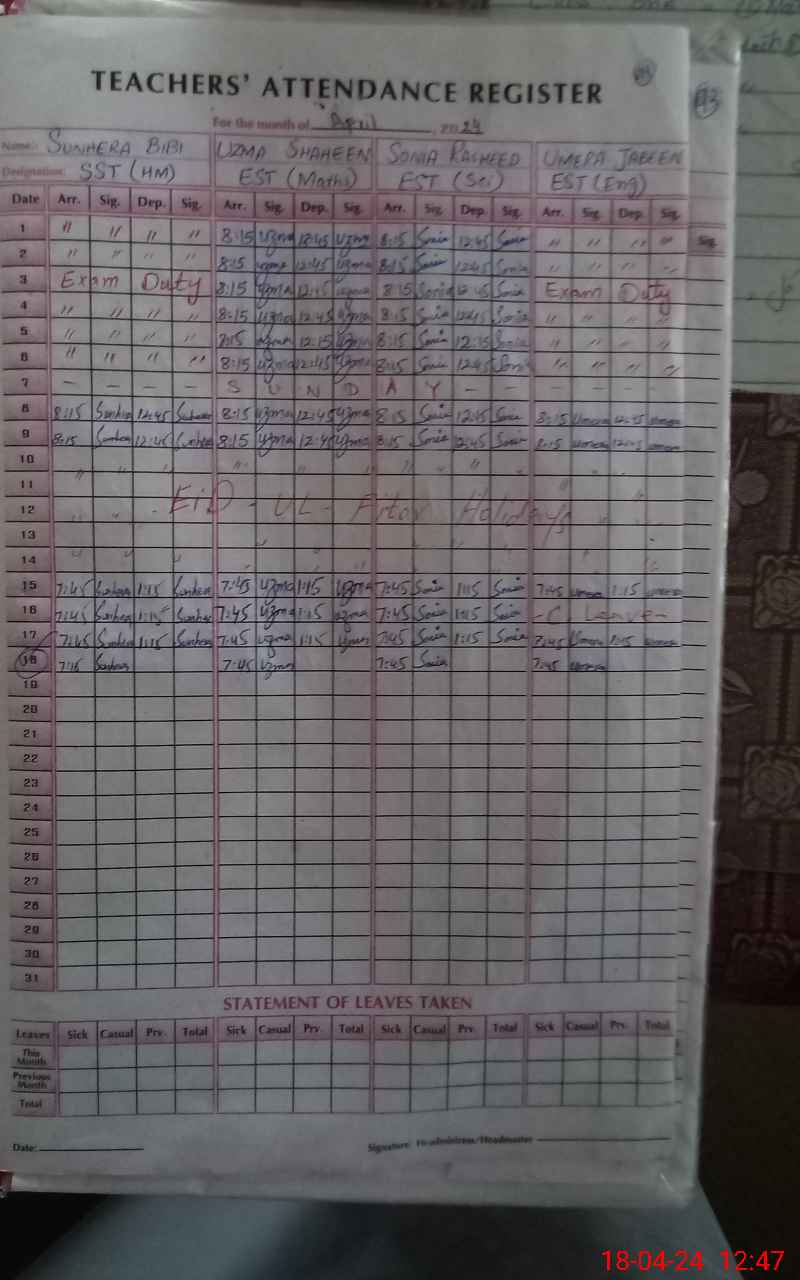 TEACHERS' ATTENDANCE REGISTER
For the month of April, 2024
Name: SUNHERA BIBI UZMA SHAHEEN SONIA RASHEED UMERA JABEEN
Designation: SST (HM) EST (Maths) EST (Sci) EST (Eng)
Date Arr. Sig. Dep. Sig. Arr. Sig. Dep. Sig. Arr. Sig. Dep. Sig. Arr. Sig. Dep. Sig. Sig.
1 " " " " 8:15 Uzma 12:45 Uzma 8:15 Sonia 12:45 Sonia " " " "
2 " " " " 8:15 Uzma 12:45 Uzma 8:15 Sonia 12:45 Sonia " " " "
3 Exam Duty 8:15 Uzma 12:45 Uzma 8:15 Sonia 12:45 Sonia Exam Duty
4 " " " " 8:15 Uzma 12:45 Uzma 8:15 Sonia 12:45 Sonia " " " "
5 " " " " Uzma 12:15 Uzma 8:15 Sonia 12:15 Sonia " " - "
6 " " " " 8:15 Uzma 12:45 Uzma 8:15 Sonia 12:45 Sonia " " " "
7 - - - - S U N D A Y - - - - - -
8 8:15 Sunhera 12:45 Sunhera 8:15 Uzma 12:45 Uzma 8:15 Sonia 12:45 Sonia 8:15 Umera 12:45 Umera
9 8:15 Sunhera 12:45 Sunhera 8:15 Uzma 12:45 Uzma 8:15 Sonia 12:45 Sonia 8:15 Umera 12:45 Umera
10
11
12 EiD - UL - Fitar Holidays
13
14
15 7:45 Sunhera 1:15 Sunhera 7:45 Uzma 1:15 Uzma 7:45 Sonia 1:15 Sonia 7:45 Umera 1:15 Umera
16 7:45 Sunhera 1:15 Sunhera 7:45 Uzma 1:15 Uzma 7:45 Sonia 1:15 Sonia - C Leave -
17 7:45 Sunhera 1:15 Sunhera 7:45 Uzma 1:15 Uzma 7:45 Sonia 1:15 Sonia 7:45 Umera 1:15 Umera
18 Sunhera 7:45 Uzma 7:45 Sonia 7:45 Umera
19
20
21
22
23
24
25
26
27
28
29
30
31
STATEMENT OF LEAVES TAKEN
Leaves Sick Casual Prv. Total Sick Casual Prv. Total Sick Casual Prv. Total Sick Casual Prv. Total
This Month
Previous Month
Total
Date: Signature: Headmistress/Headmaster
18-04-24 12:47